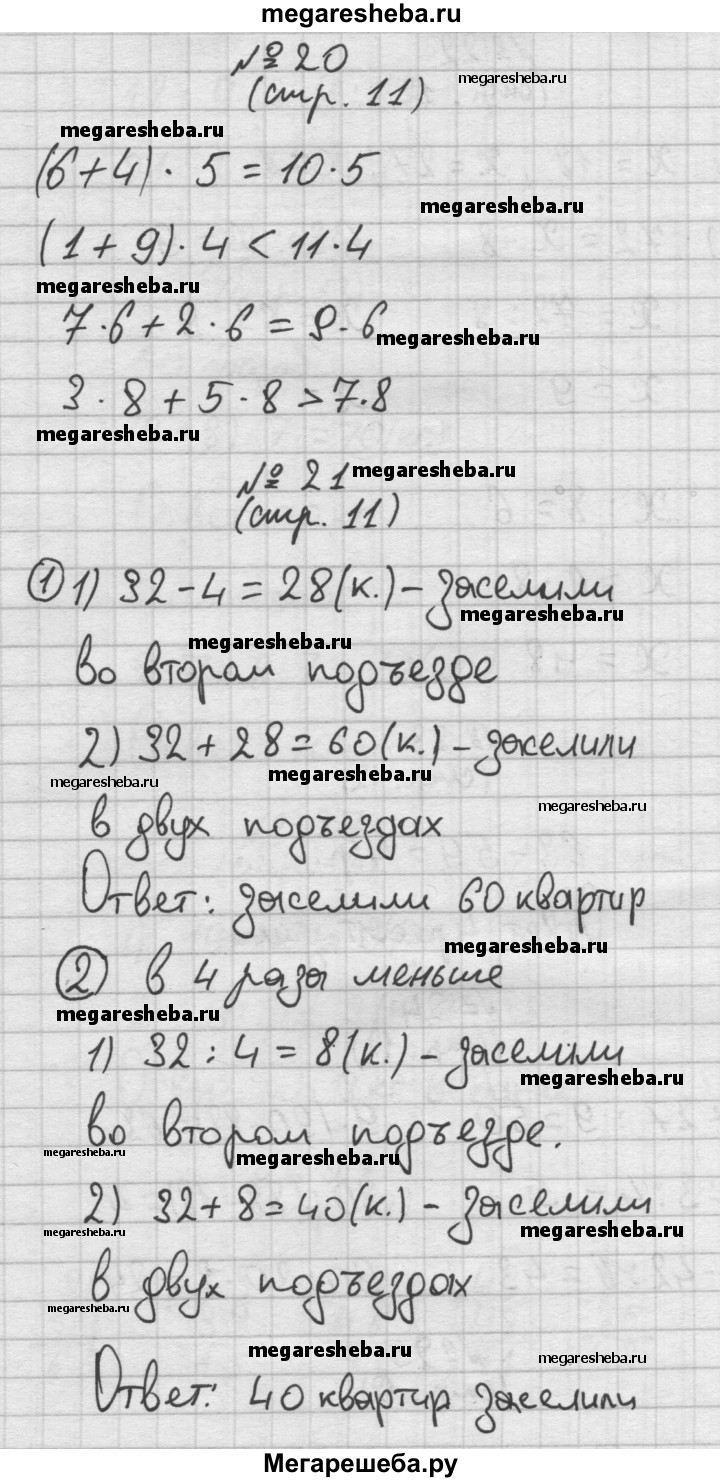 megaresheba.ru
№ 20
(стр. 11)
megaresheba.ru
megaresheba.ru
(6+4) · 5 = 10·5
megaresheba.ru
(1+9)·4 < 11·4
megaresheba.ru
7·6+2·6 = 9·6
megaresheba.ru
3·8+5·8 > 7·8
megaresheba.ru
№ 21
megaresheba.ru
(стр. 11)
① 1) 32-4 = 28(к.) - заселили
megaresheba.ru
megaresheba.ru
во втором подъезде
2) 32+28 = 60(к.) - заселили
megaresheba.ru
megaresheba.ru
megaresheba.ru
в двух подъездах
Ответ: заселили 60 квартир
megaresheba.ru
② в 4 разы меньше
megaresheba.ru
1) 32 : 4 = 8(к.) - заселили
megaresheba.ru
во втором подъезде.
megaresheba.ru
megaresheba.ru
2) 32+8 = 40(к.) - заселили
megaresheba.ru
megaresheba.ru
в двух подъездах
megaresheba.ru
megaresheba.ru
megaresheba.ru
Ответ: 40 квартир заселили
Мегарешеба.ру